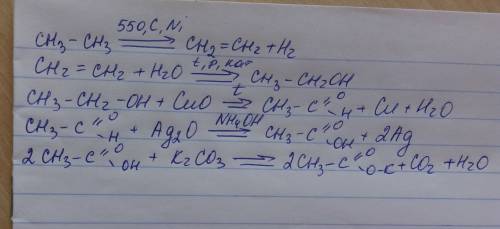 CH₃-CH₃ 550,C,Ni ⟶ CH₂=CH₂+H₂
CH₂=CH₂+H₂O t,P,кат ⟶ CH₃-CH₂OH
CH₃-CH₂-OH + CuO t ⟶ CH₃-C=O-H + Cu+H₂O
CH₃-C=O-H + Ag₂O NH₄OH ⟶ CH₃-C=O-OH + 2Ag
2CH₃-C=O-OH + K₂CO₃ ⟶ 2CH₃-C=O-O-K+CO₂+H₂O